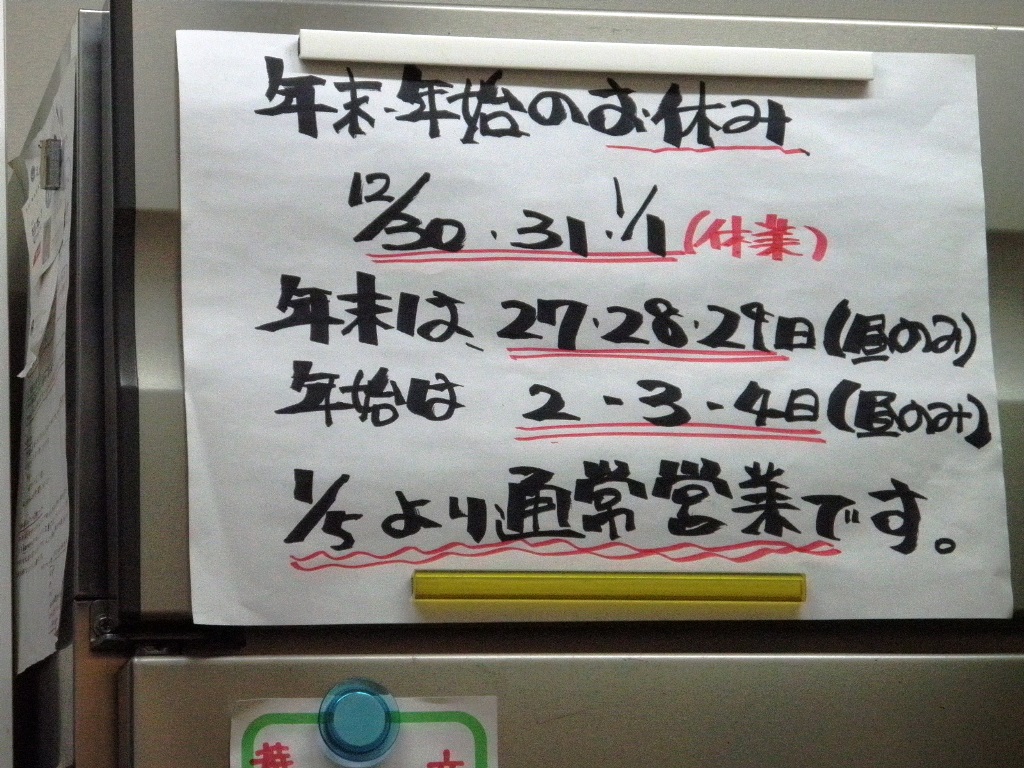 年末・年始のお休み
12/30・31・1/1(休業)
年末は、27・28・29日(昼のみ)
年始は 2-3-4日(昼のみ)
1/5より通常営業です。